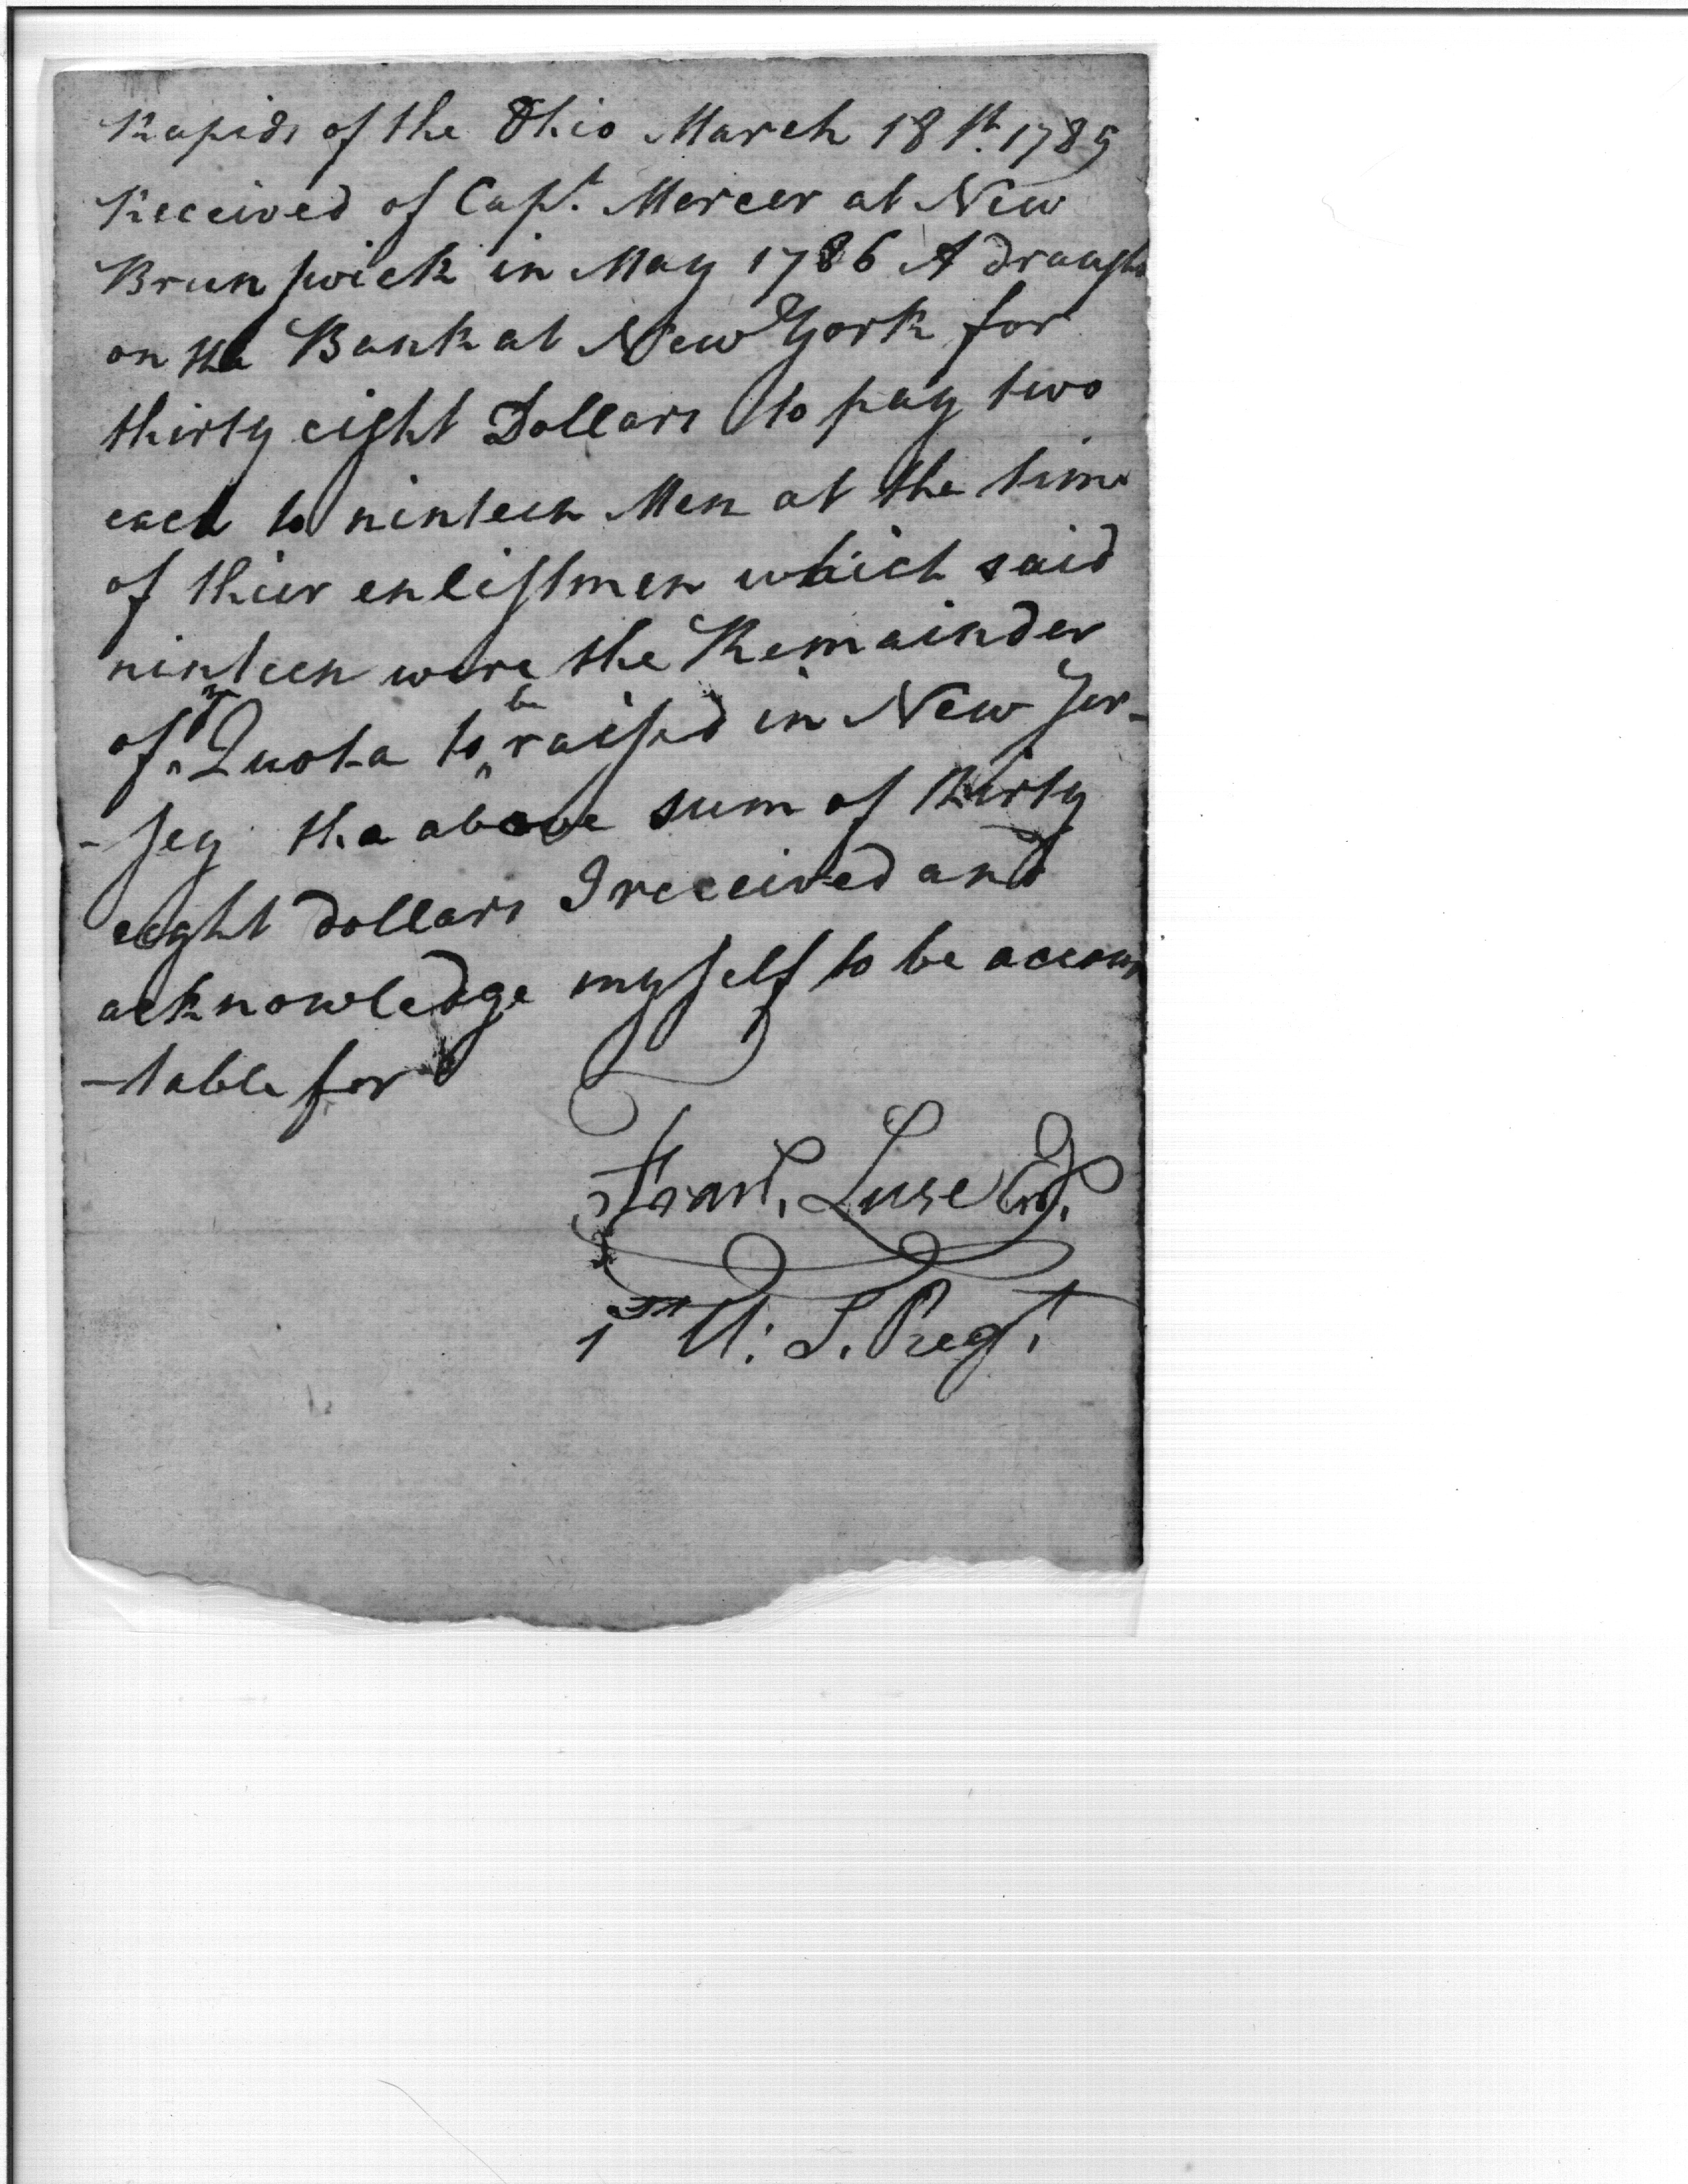 Rapids of the Ohio March 18th. 1789
Received of Capt. Mercer at New
Brunswick in May 1786 A draught
on the Bank at New York for
thirty eight Dollars to pay two
each to ninteen Men at the time
of thier enlistmen which said
ninteen were the Remainder
of ye Quota to be raised in New Jer-
-sey the above sum of thirty
eight dollars I received and
acknowledge myself to be accoun
-table for
Luse Ens.
1st U: S. Regt.